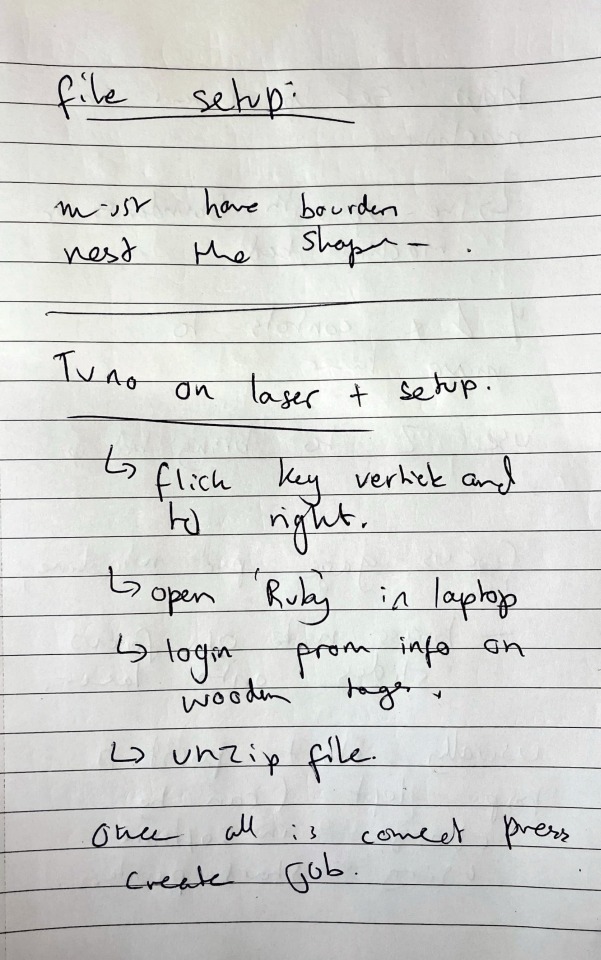 file setup:
must have bourden
nest the Shape .
Turn on laser + setup.
↳ flick key vertick and
to right.
↳ open 'Ruby' in laptop
↳ login from info on
wooden tags.
↳ unzip file.
Once all is correct press
create Job.